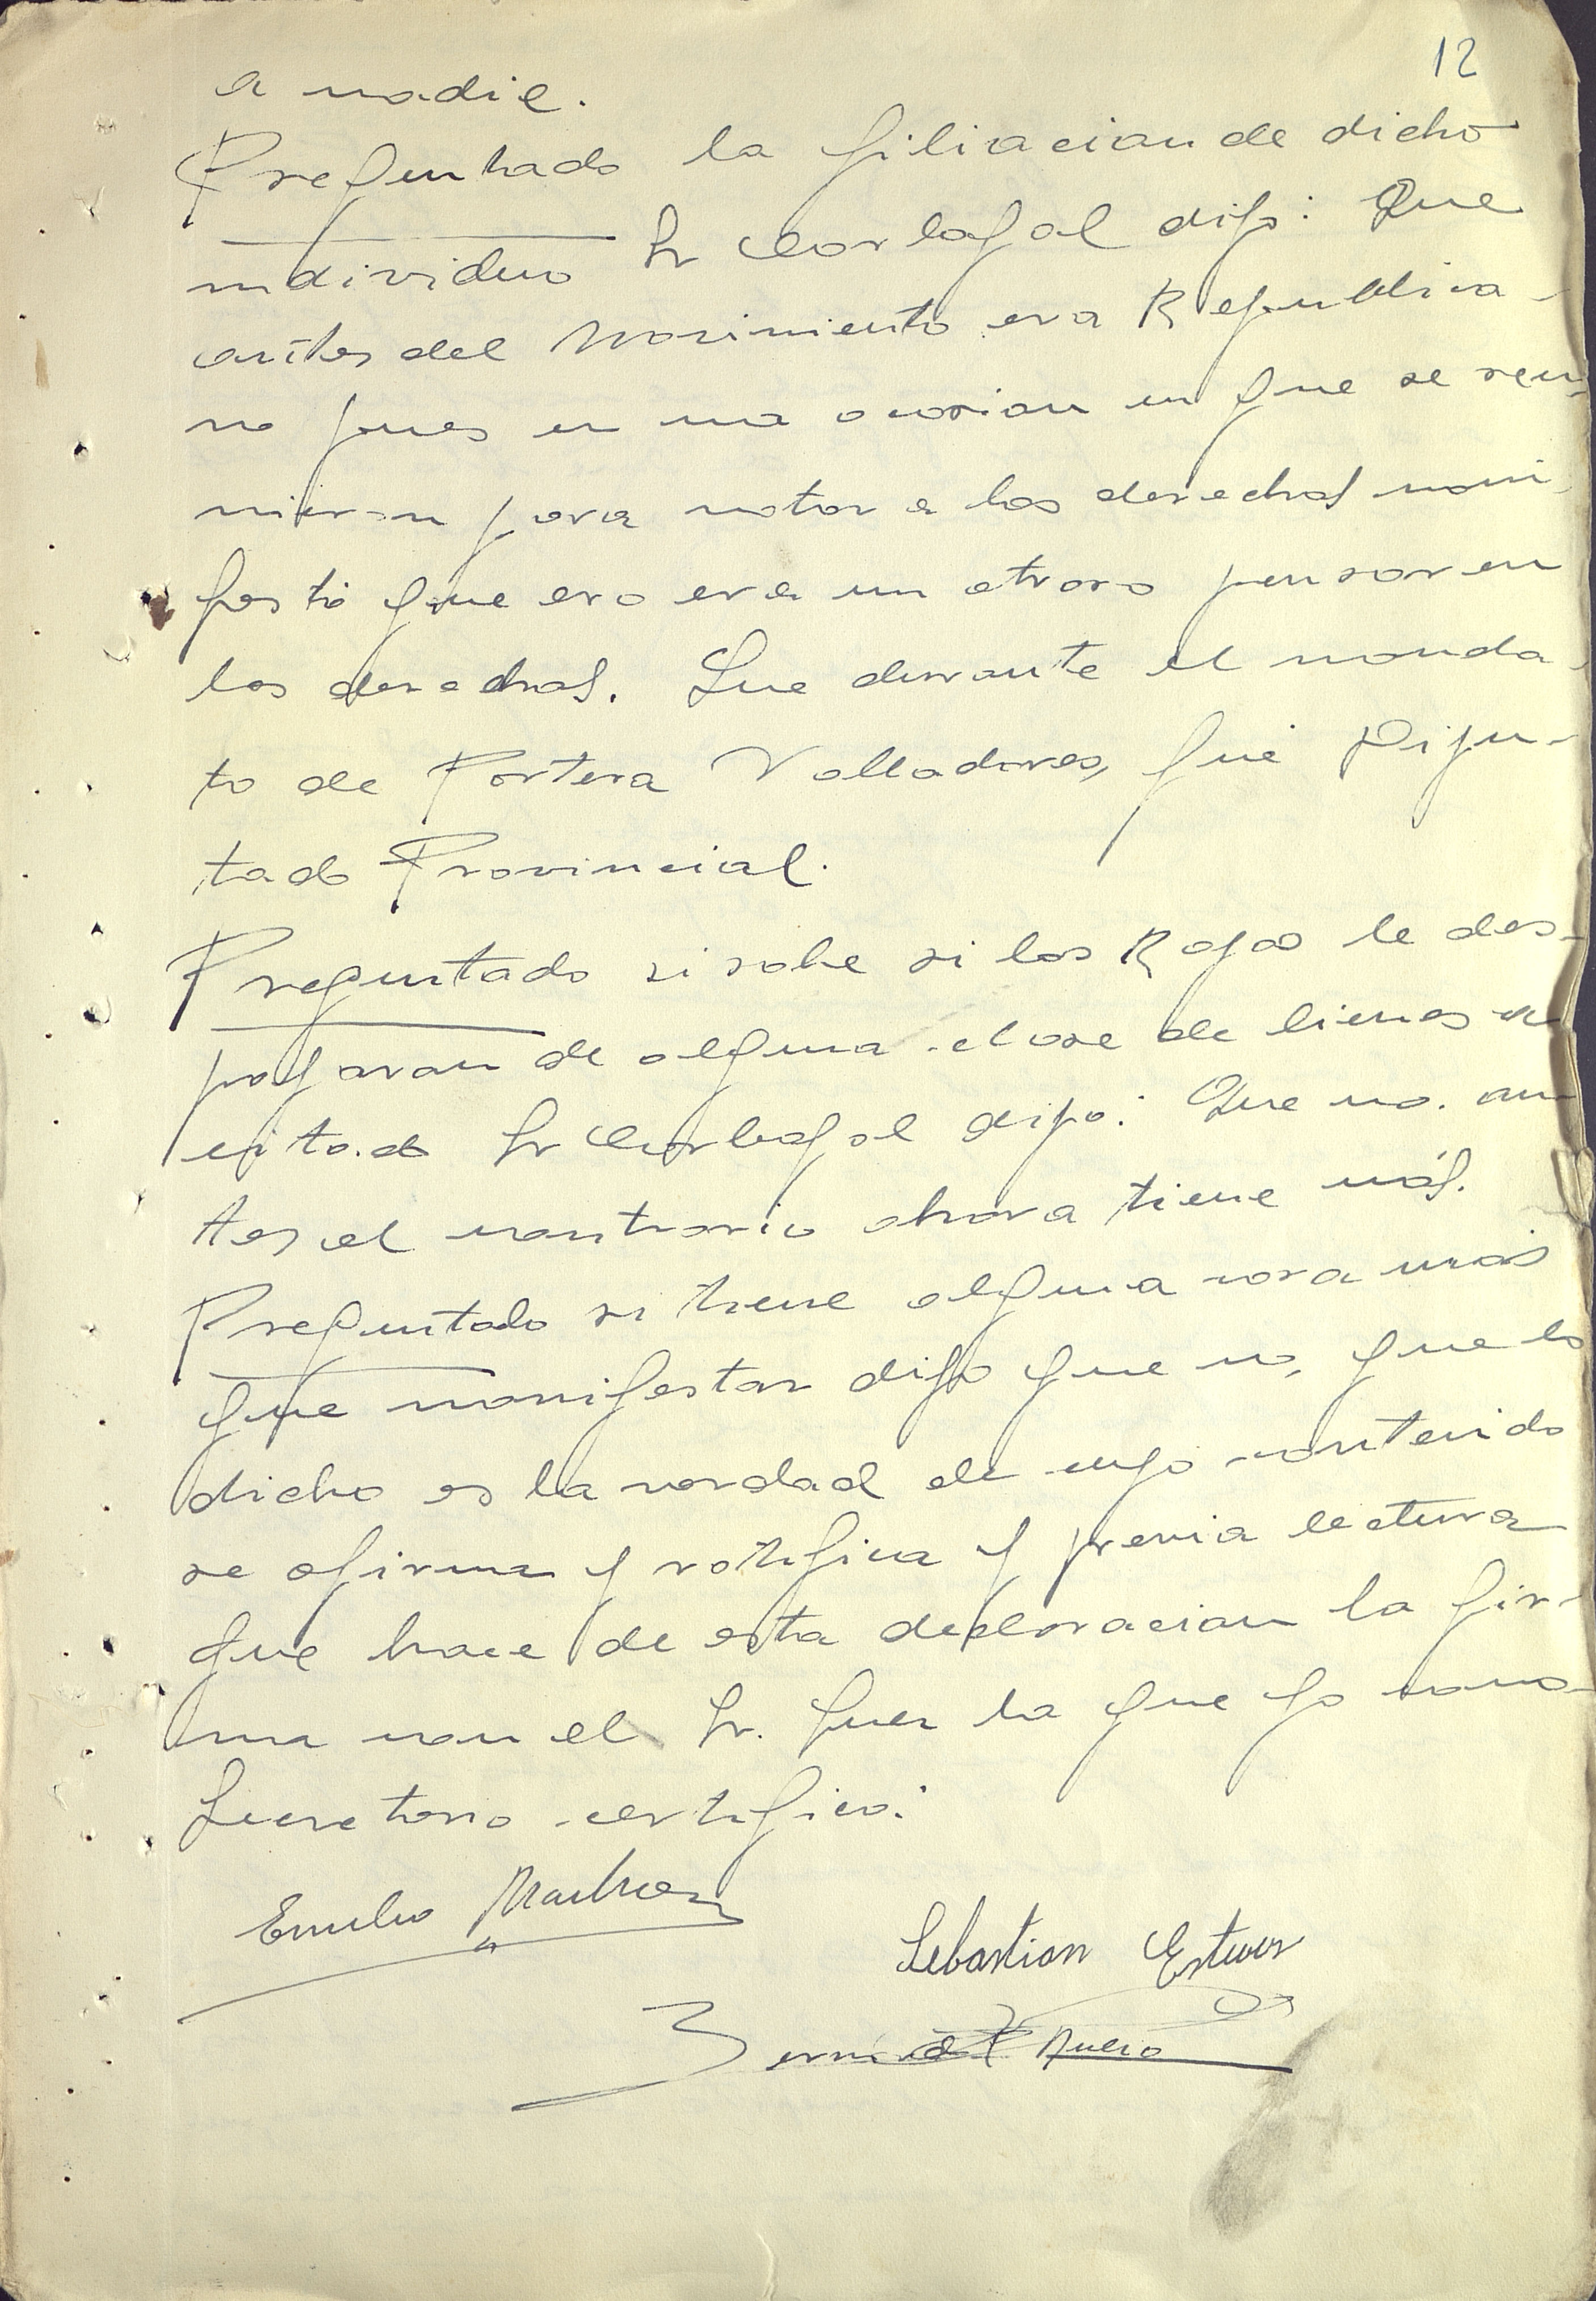 12
a nadie.
Preguntado la filiacion de dicho
individuo Sr Carbajal dijo: Que
antes del Movimiento era Republica-
no pues en una ocasion en que se reu-
nieron para votar a las derechas mani-
festó que era un atraso pensar en
las derechas. Que durante el manda-
to de Portera Valladares, fué Dipu-
tado Provincial.
Preguntado si sabe si los Rojos le des-
pojaran de alguna clase de bienes al
citado Sr Carbajal dijo: Que no. an
tes el contrario ahora tiene más.
Preguntado si tiene alguna cosa más
que manifestar dijo que no, que lo
dicho es la verdad de cuyo contenido
se afirma y ratifica y previa lectura
que hace de esta declaracion la fir-
ma con el Sr. Juez la que yo como
Secretario certifico:
Emilio Martinez
Sebastian Estever